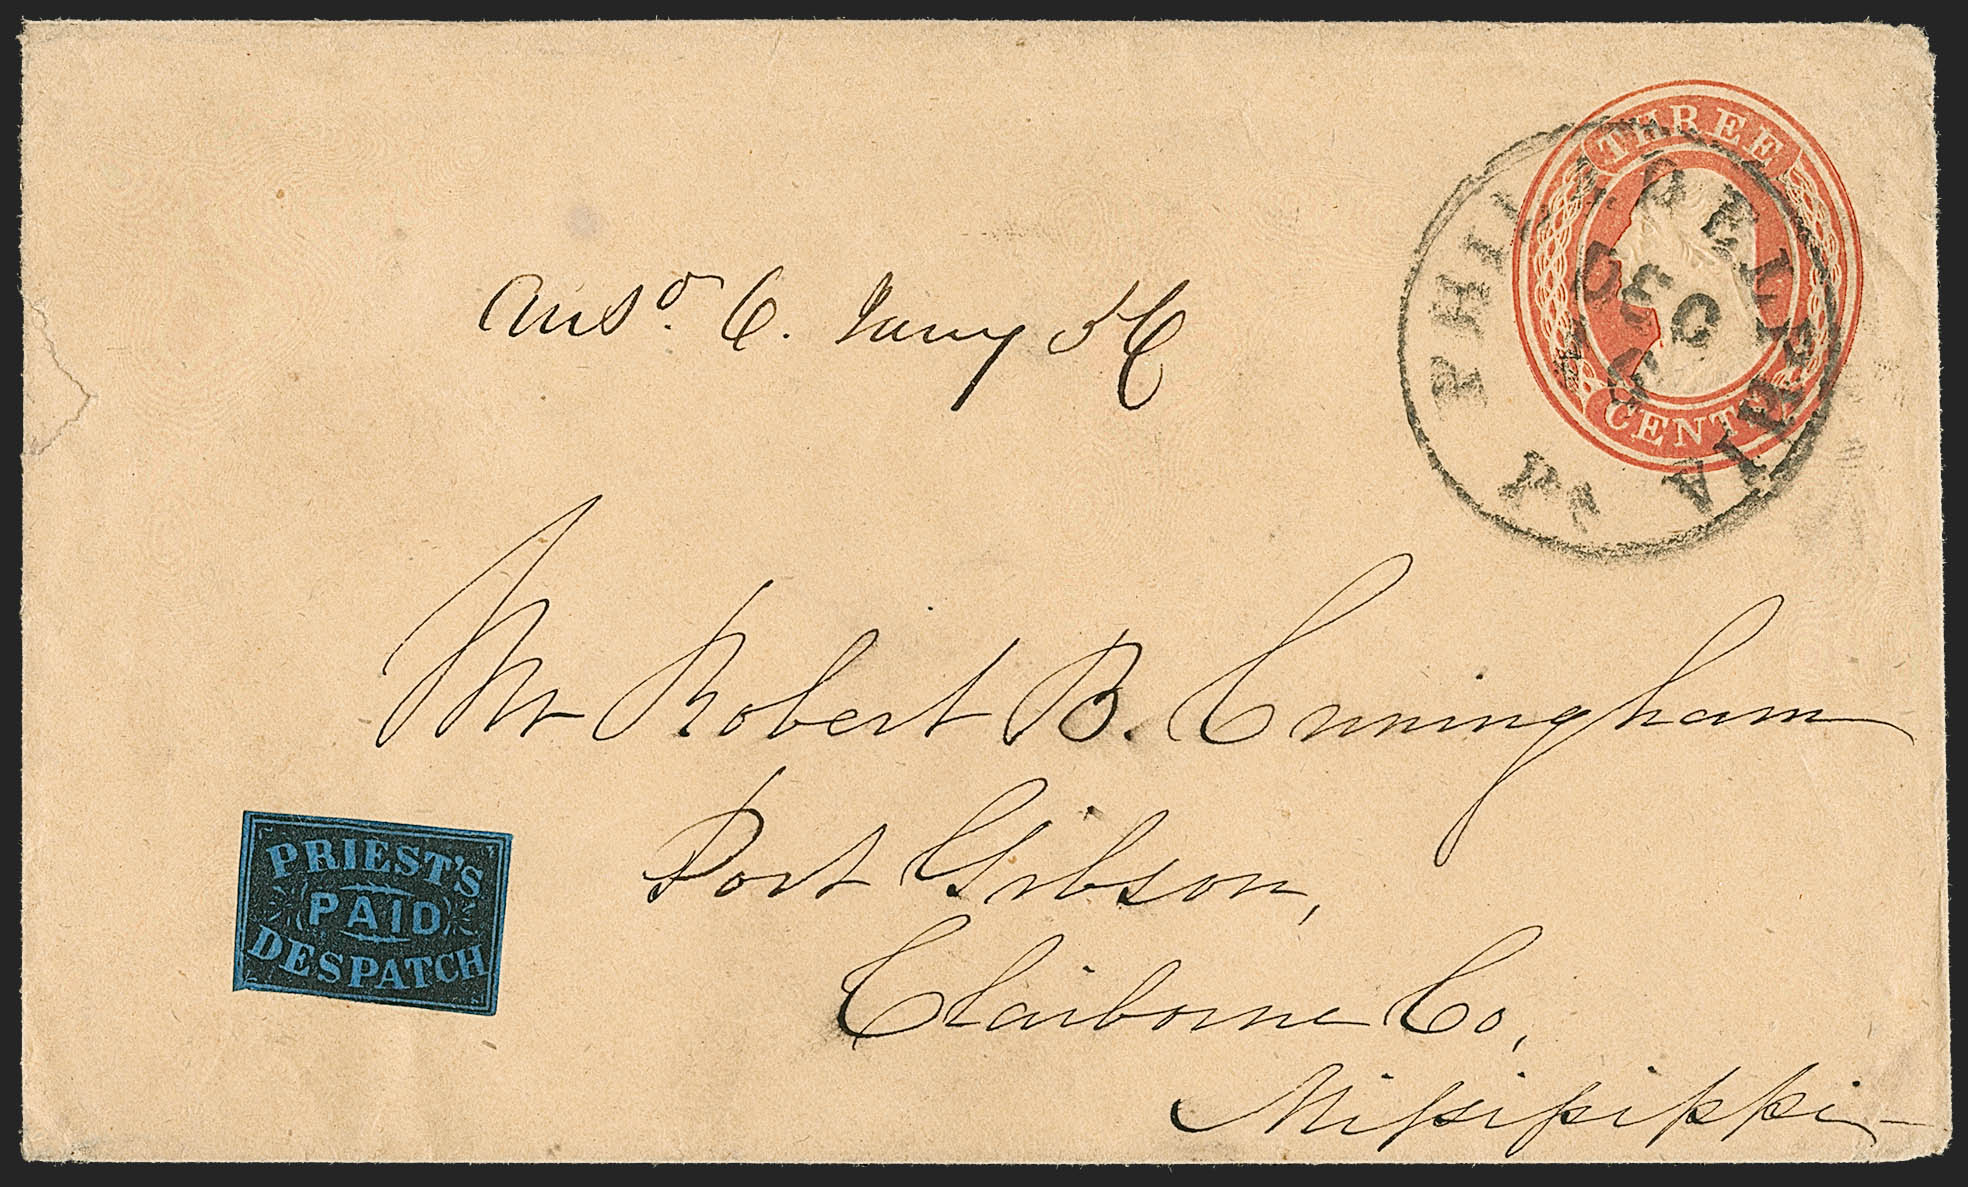 THREE
CENTS
PHILADELPHIA
DEC
30
Pa
Ansd. C. Jany 5th
Mr Robert B. Cunningham
Port Gibson,
Claiborne Co,
Missisippi
PRIEST'S
PAID
DESPATCH